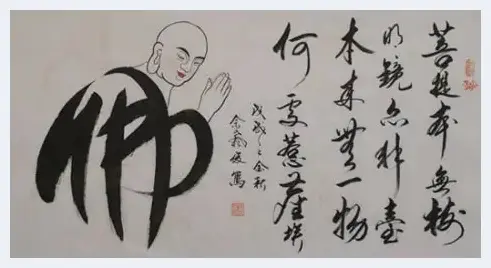 菩提本無樹
明鏡亦非臺
本来無一物
何處惹塵埃
戊戌之金秋
佛